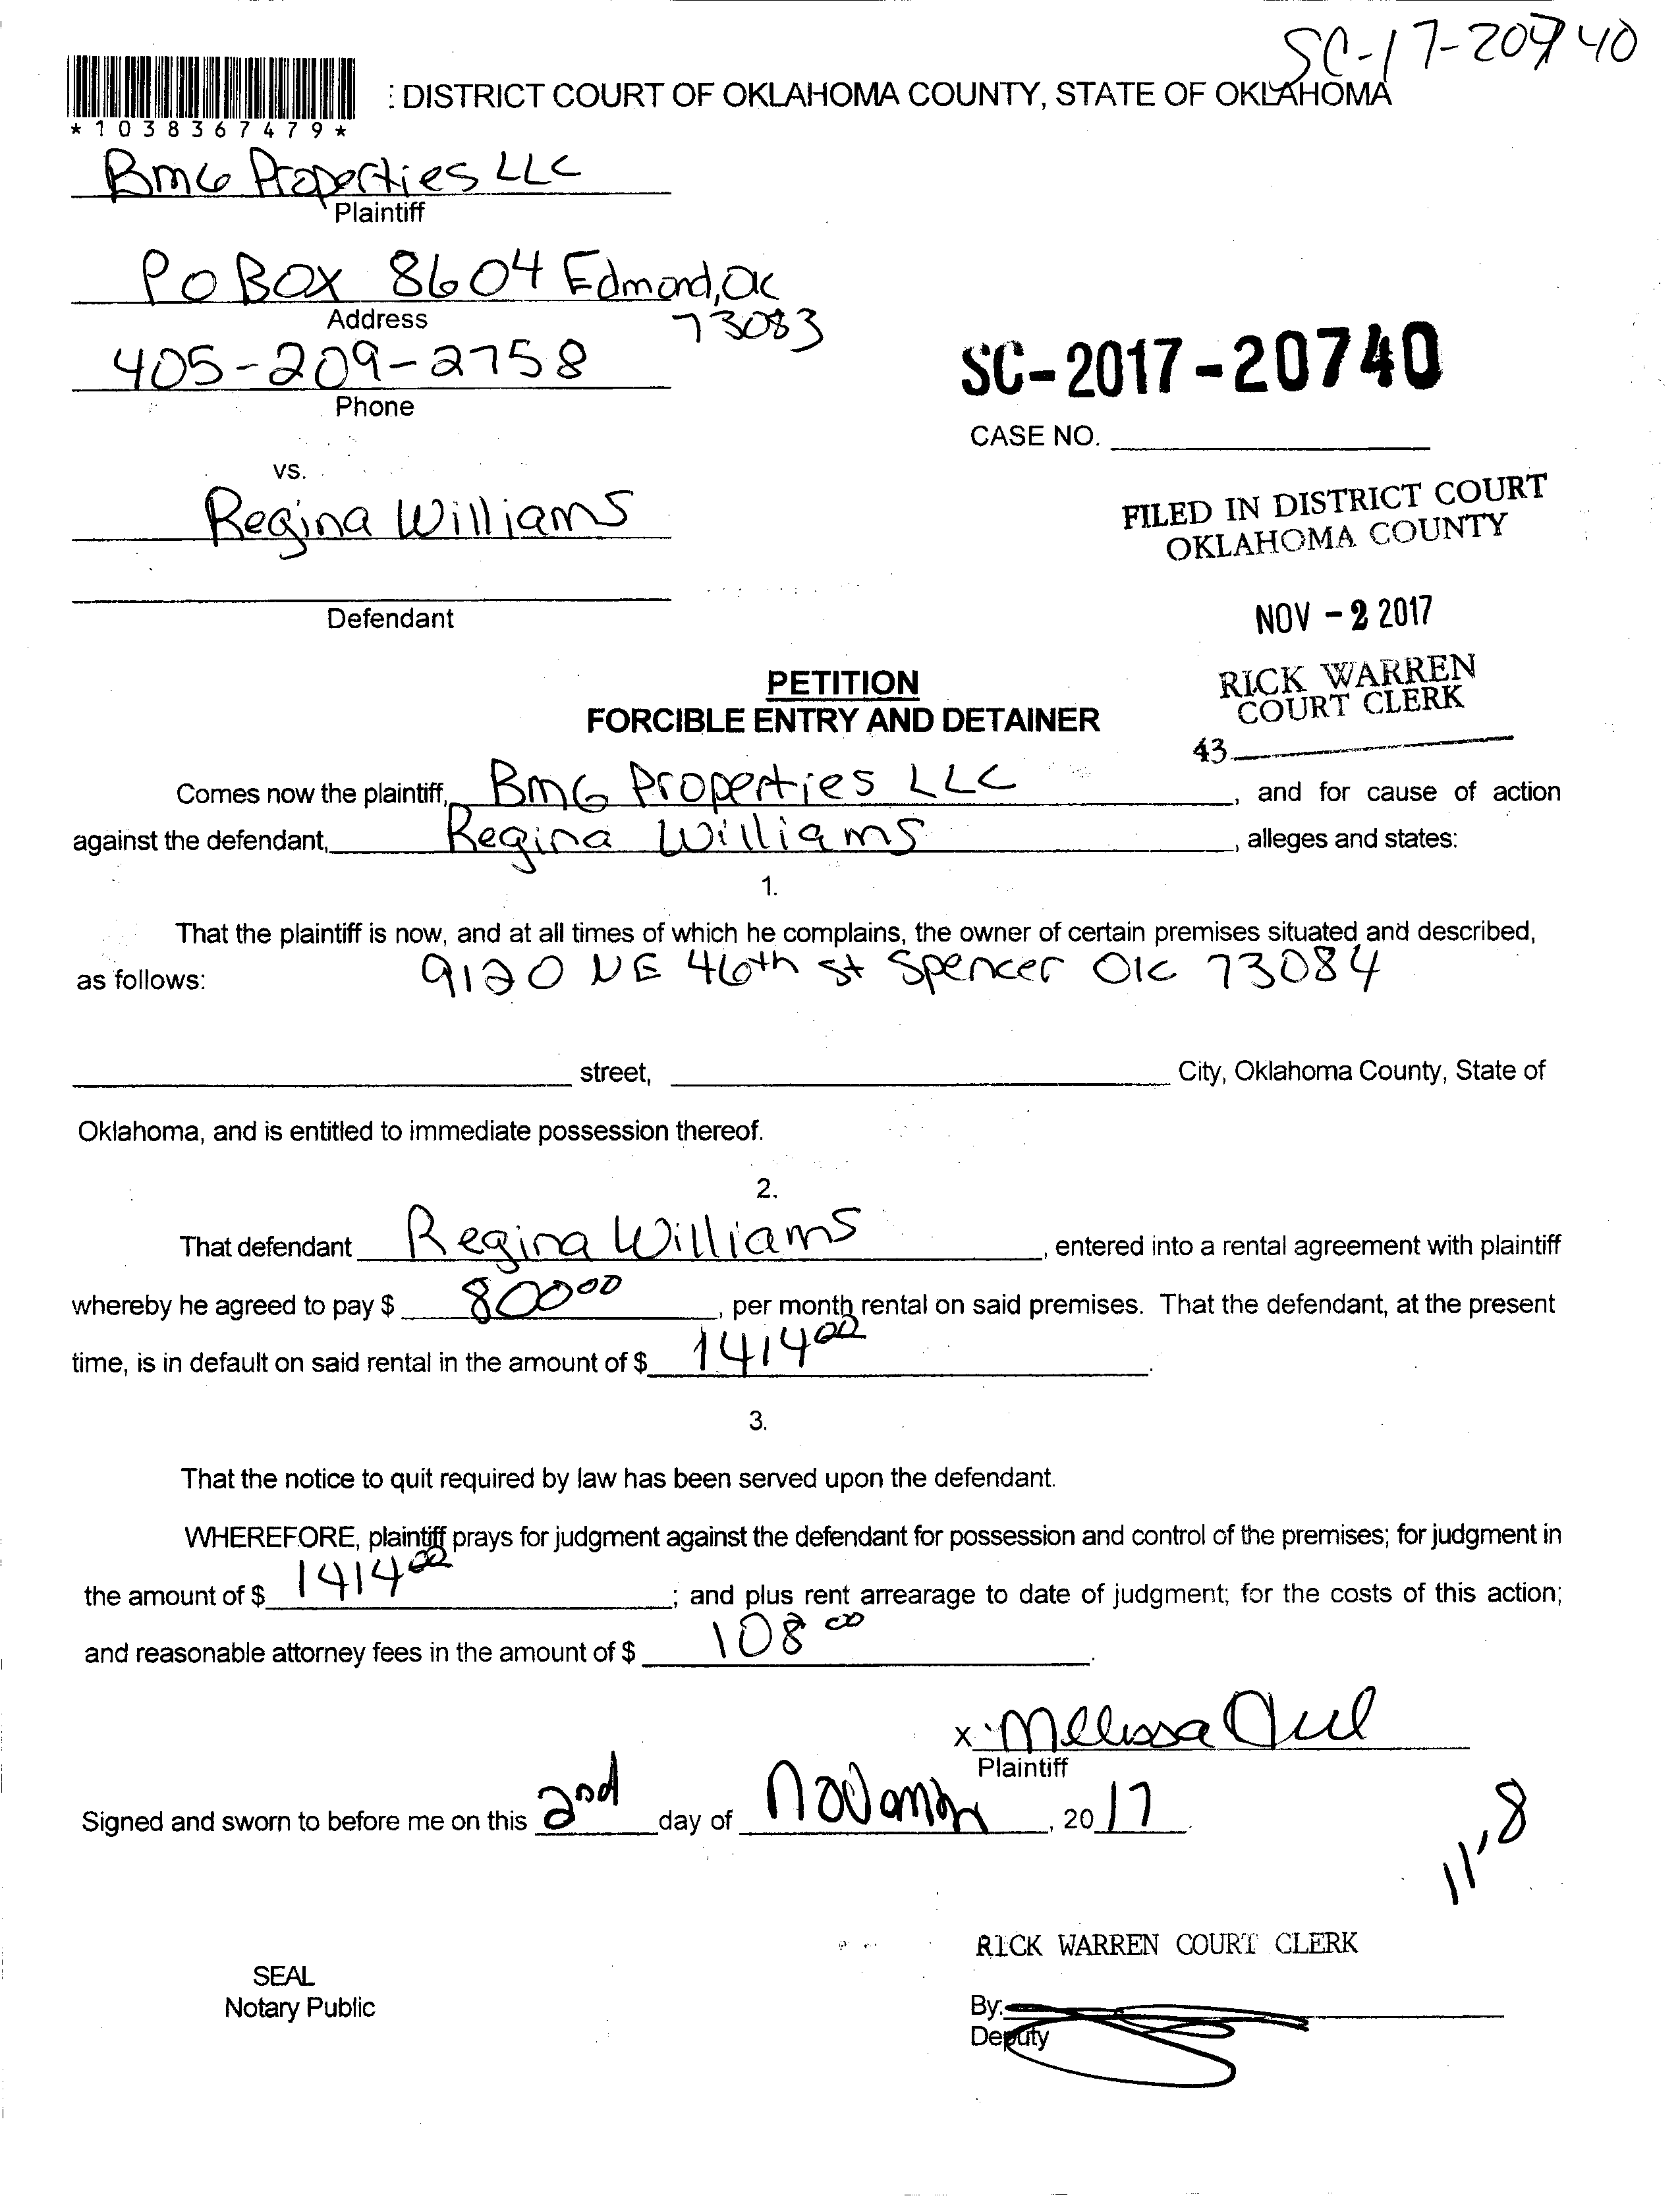 SC-17-20740
: DISTRICT COURT OF OKLAHOMA COUNTY, STATE OF OKLAHOMA
*1038367479*
BMG Properties LLC
Plaintiff
PO BOX 8604 Edmond, OK
73083
Address
405-209-2758
Phone
SC-2017-20740
CASE NO.
vs.
Regina Williams
Defendant
FILED IN DISTRICT COURT
OKLAHOMA COUNTY
NOV - 2 2017
RICK WARREN
COURT CLERK
43
PETITION
FORCIBLE ENTRY AND DETAINER
Comes now the plaintiff, BMG Properties LLC, and for cause of action
against the defendant, Regina Williams, alleges and states:
1.
That the plaintiff is now, and at all times of which he complains, the owner of certain premises situated and described,
as follows: 9120 NE 46th st Spencer OK 73084
street, City, Oklahoma County, State of
Oklahoma, and is entitled to immediate possession thereof.
2.
That defendant Regina Williams, entered into a rental agreement with plaintiff
whereby he agreed to pay $ 800 00, per month rental on said premises. That the defendant, at the present
time, is in default on said rental in the amount of $ 1414 00.
3.
That the notice to quit required by law has been served upon the defendant.
WHEREFORE, plaintiff prays for judgment against the defendant for possession and control of the premises; for judgment in
the amount of $ 1414 00; and plus rent arrearage to date of judgment; for the costs of this action;
and reasonable attorney fees in the amount of $ 108 00.
x Melissa
Plaintiff
Signed and sworn to before me on this 2nd day of November, 2017.
11,8
RICK WARREN COURT CLERK
SEAL
Notary Public
By:
Deputy